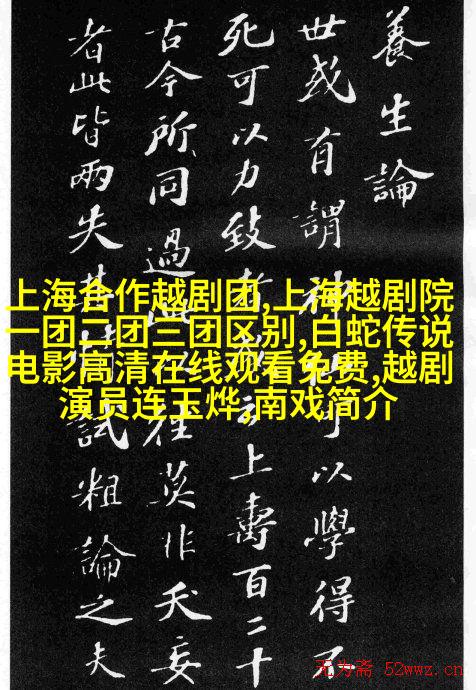 養生論
世或有謂神可以學得不
死可以力致者云上壽百二十
古今所同過往莫非夭妄
者此皆兩失其試粗論之夫
上海合作越剧团,上海越剧院
一团二团三团区别,白蛇传说
电影高清在线观看免费,越剧
演员连玉烨,南戏简介
无为斋 52wwz.cn